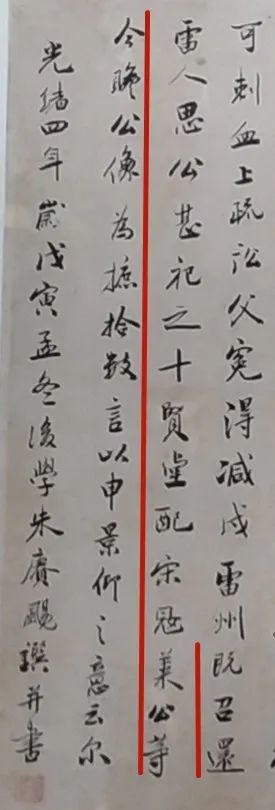 可刺血上疏訟父寃得減戍雷州既召還
雷人思公甚祀之十賢堂配宋寇萊公等
今睹公像為摭拾數言以申景仰之意云尔
光緒四年歲戊寅孟冬後學朱賡颺譔并書